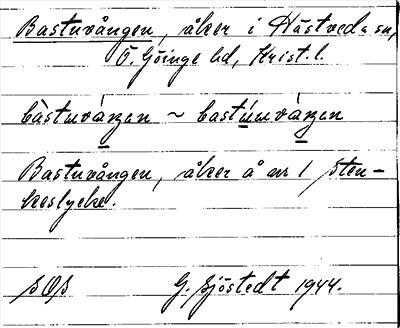 Bastuvången, åker i Hästveda sn,
Ö. Göinge hd, Krist. l.
bàstuváŋen ~ bastúuváŋen
Bastuvången, åker å nr 1 Sten-
keslycke.
SOS G. Sjöstedt 1944.